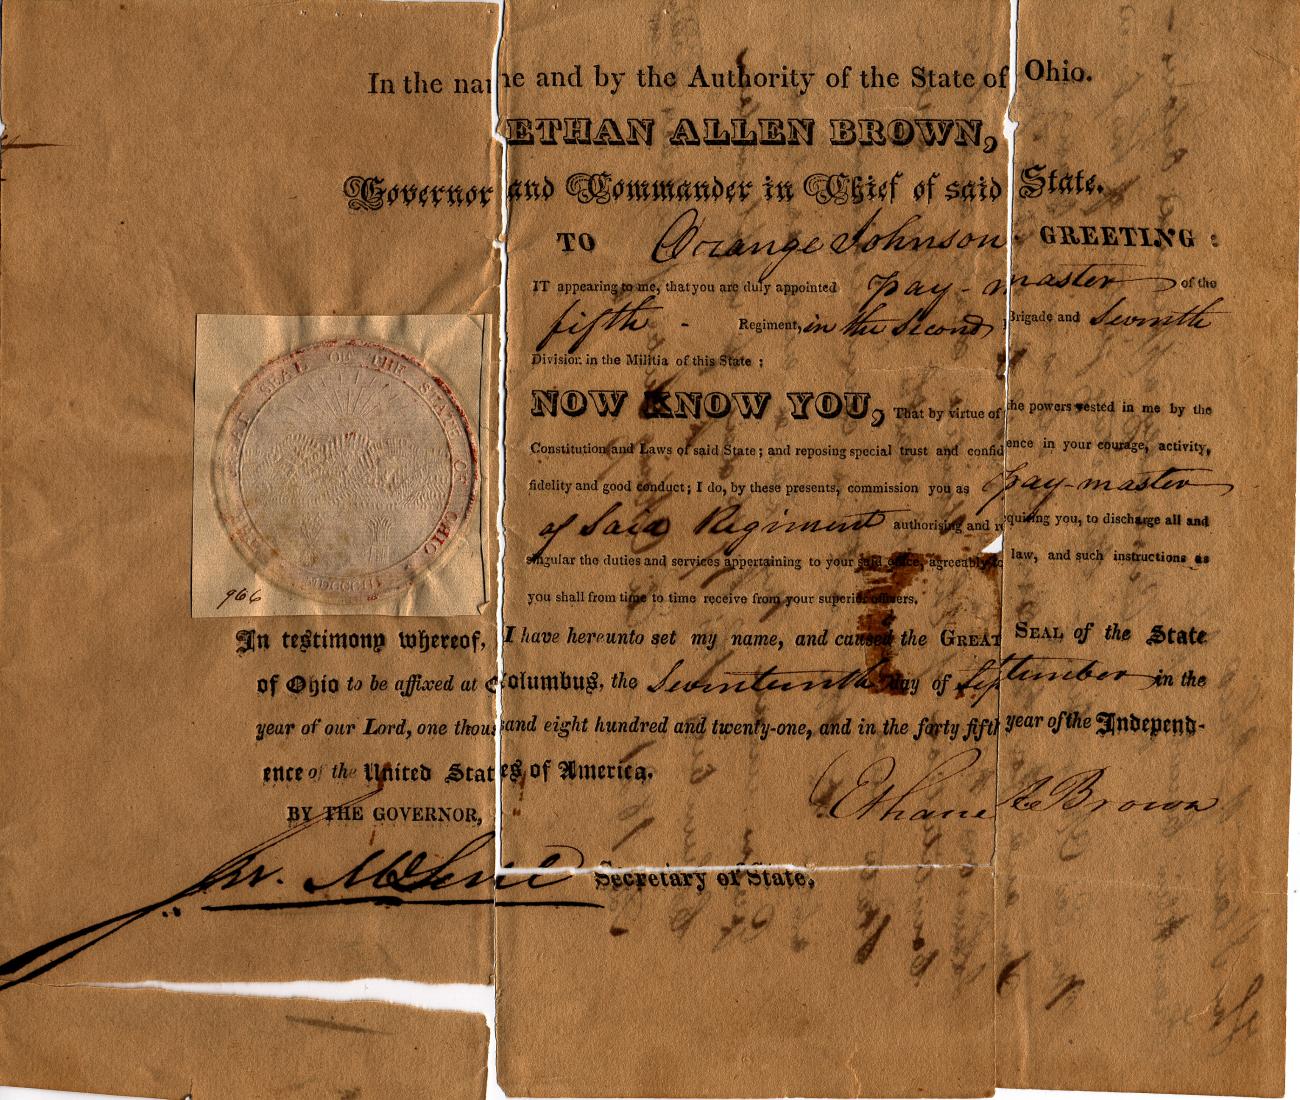 In the name and by the Authority of the State of Ohio.
ETHAN ALLEN BROWN,
Governor and Commander in Chief of said State.
TO Orange Johnson GREETING:
IT appearing to me, that you are duly appointed pay-master of the
fifth - Regiment, in the second Brigade and Seventh
Division in the Militia of this State;
NOW KNOW YOU, That by virtue of the powers vested in me by the
Constitution and Laws of said State; and reposing special trust and confidence in your courage, activity,
fidelity and good conduct; I do, by these presents, commission you as pay-master
of Said Regiment authorising and requiring you, to discharge all and
singular the duties and services appertaining to your said office, agreeably to law, and such instructions as
you shall from time to time receive from your superior officers.
THE GREAT SEAL OF THE STATE OF OHIO
MDCCCII
966
In testimony whereof, I have hereunto set my name, and caused the GREAT SEAL of the State
of Ohio to be affixed at Columbus, the Seventeenth day of September in the
year of our Lord, one thousand eight hundred and twenty-one, and in the forty fifth year of the Independ-
ence of the United States of America.
Ethan A Brown
BY THE GOVERNOR,
Jer. McLene Secretary of State.